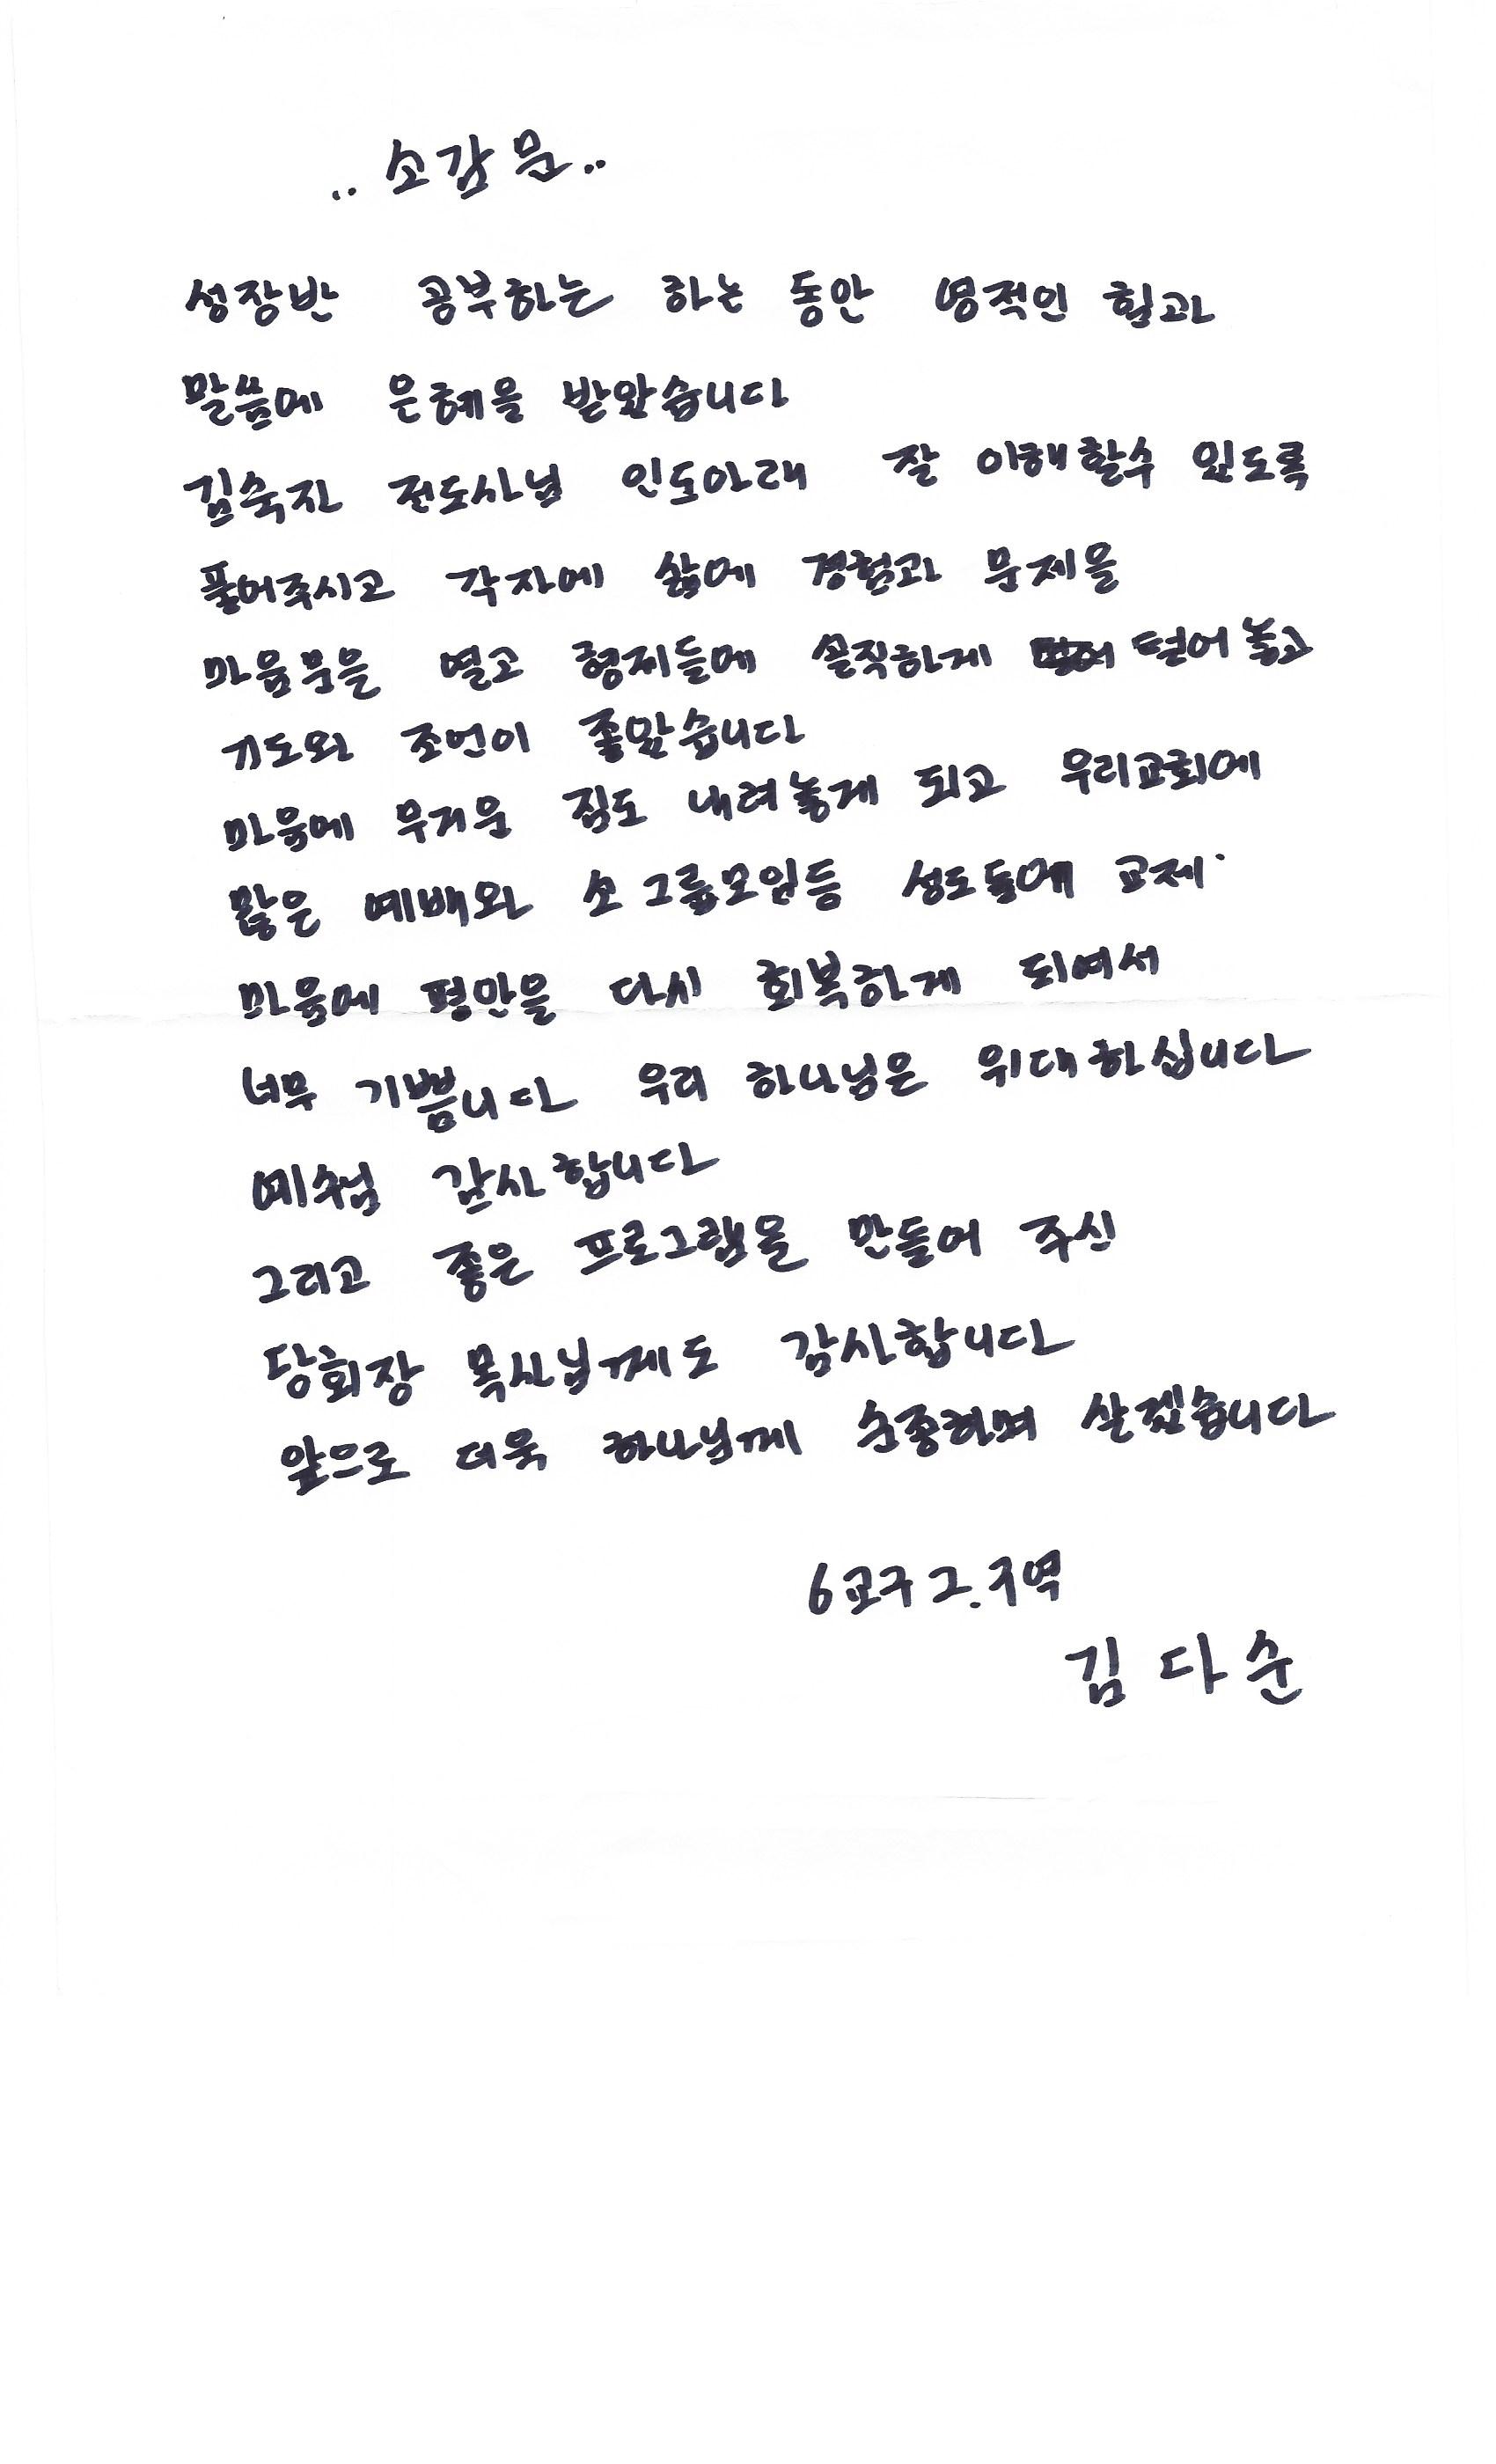 ..소감문..
성장반 공부하는 하는 동안 영적인 힘과
말씀에 은혜을 받았습니다
김숙자 전도사님 인도아래 잘 이해할수 있도록
풀어주시고 각자에 삶에 경험과 문제을
마음문을 열고 형제들에 솔직하게 털어놓고
기도와 조언이 좋았습니다
마음에 무거운 짐도 내려놓게 되고 우리교회에
많은 예배와 소그룹모임등 성도들에 교제
마음에 평안을 다시 회복하게 되여서
너무 기쁩니다 우리 하나님은 위대하십니다
예수님 감사합니다
그리고 좋은 프로그램을 만들어 주신
당회장 목사님께도 감사합니다
앞으로 더욱 하나님께 순종하며 살겠습니다
6교구 2.구역
김다순